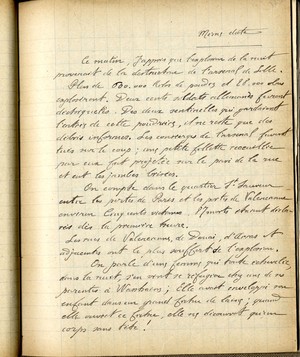 Même date
Ce matin, j'apprends que l'explosion de la nuit
provenait de la destruction de l'arsenal de Lille.
Plus de 600.000 kilos de poudre et 22.000 obus
explosèrent. Deux cents soldats allemands furent
déchiquetés. Des deux sentinelles qui gardaient
l'entrée de cette poudrière, il ne reste que des
débris informes. Les concierges de l'arsenal furent
tués sur le coup ; une petite fillette recueillie
par eux fut projetée sur la pointe de la rue
et eut les jambes brisées.
On compte dans le quartier St Sauveur
entre les portes de Paris et les portes de Valenciennes
environ cinquante maisons. morts étant décla-
rés dès la première heure.
Les rues de Valenciennes, de Douai, d'Arras et
adjacentes ont le plus souffert de l'explosion.
On parle d'une femme qui toute affolée
dans la nuit, s'en vient se réfugier chez une de ses
parentes à Wazemmes ; Elle avait enveloppé son
enfant dans un grand fichu de laine ; quand
elle ouvrit ce fichu, elle ne découvrit qu'un
corps sans tête !